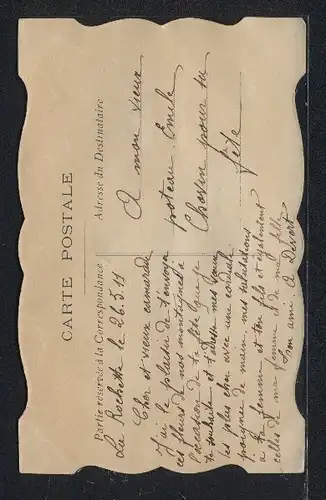 CARTE POSTALE
Partie réservée à la Correspondance
Adresse du Destinataire
La Rochette le 26.5.11
Cher et vieux camarade
J'ai le plaisir de t'envoyer
ces fleurs de nos montagnes à
l'occasion de ta fête que je
te souhaite et t'adresse mes vœux
les plus cher avec une cordiale
poignée de main mes salutations
a ta femme et ton fils et également
celles de ma femme et de ma fille
Ton ami. A
A mon vieux
poteau Emile
Chovin pour sa
fête